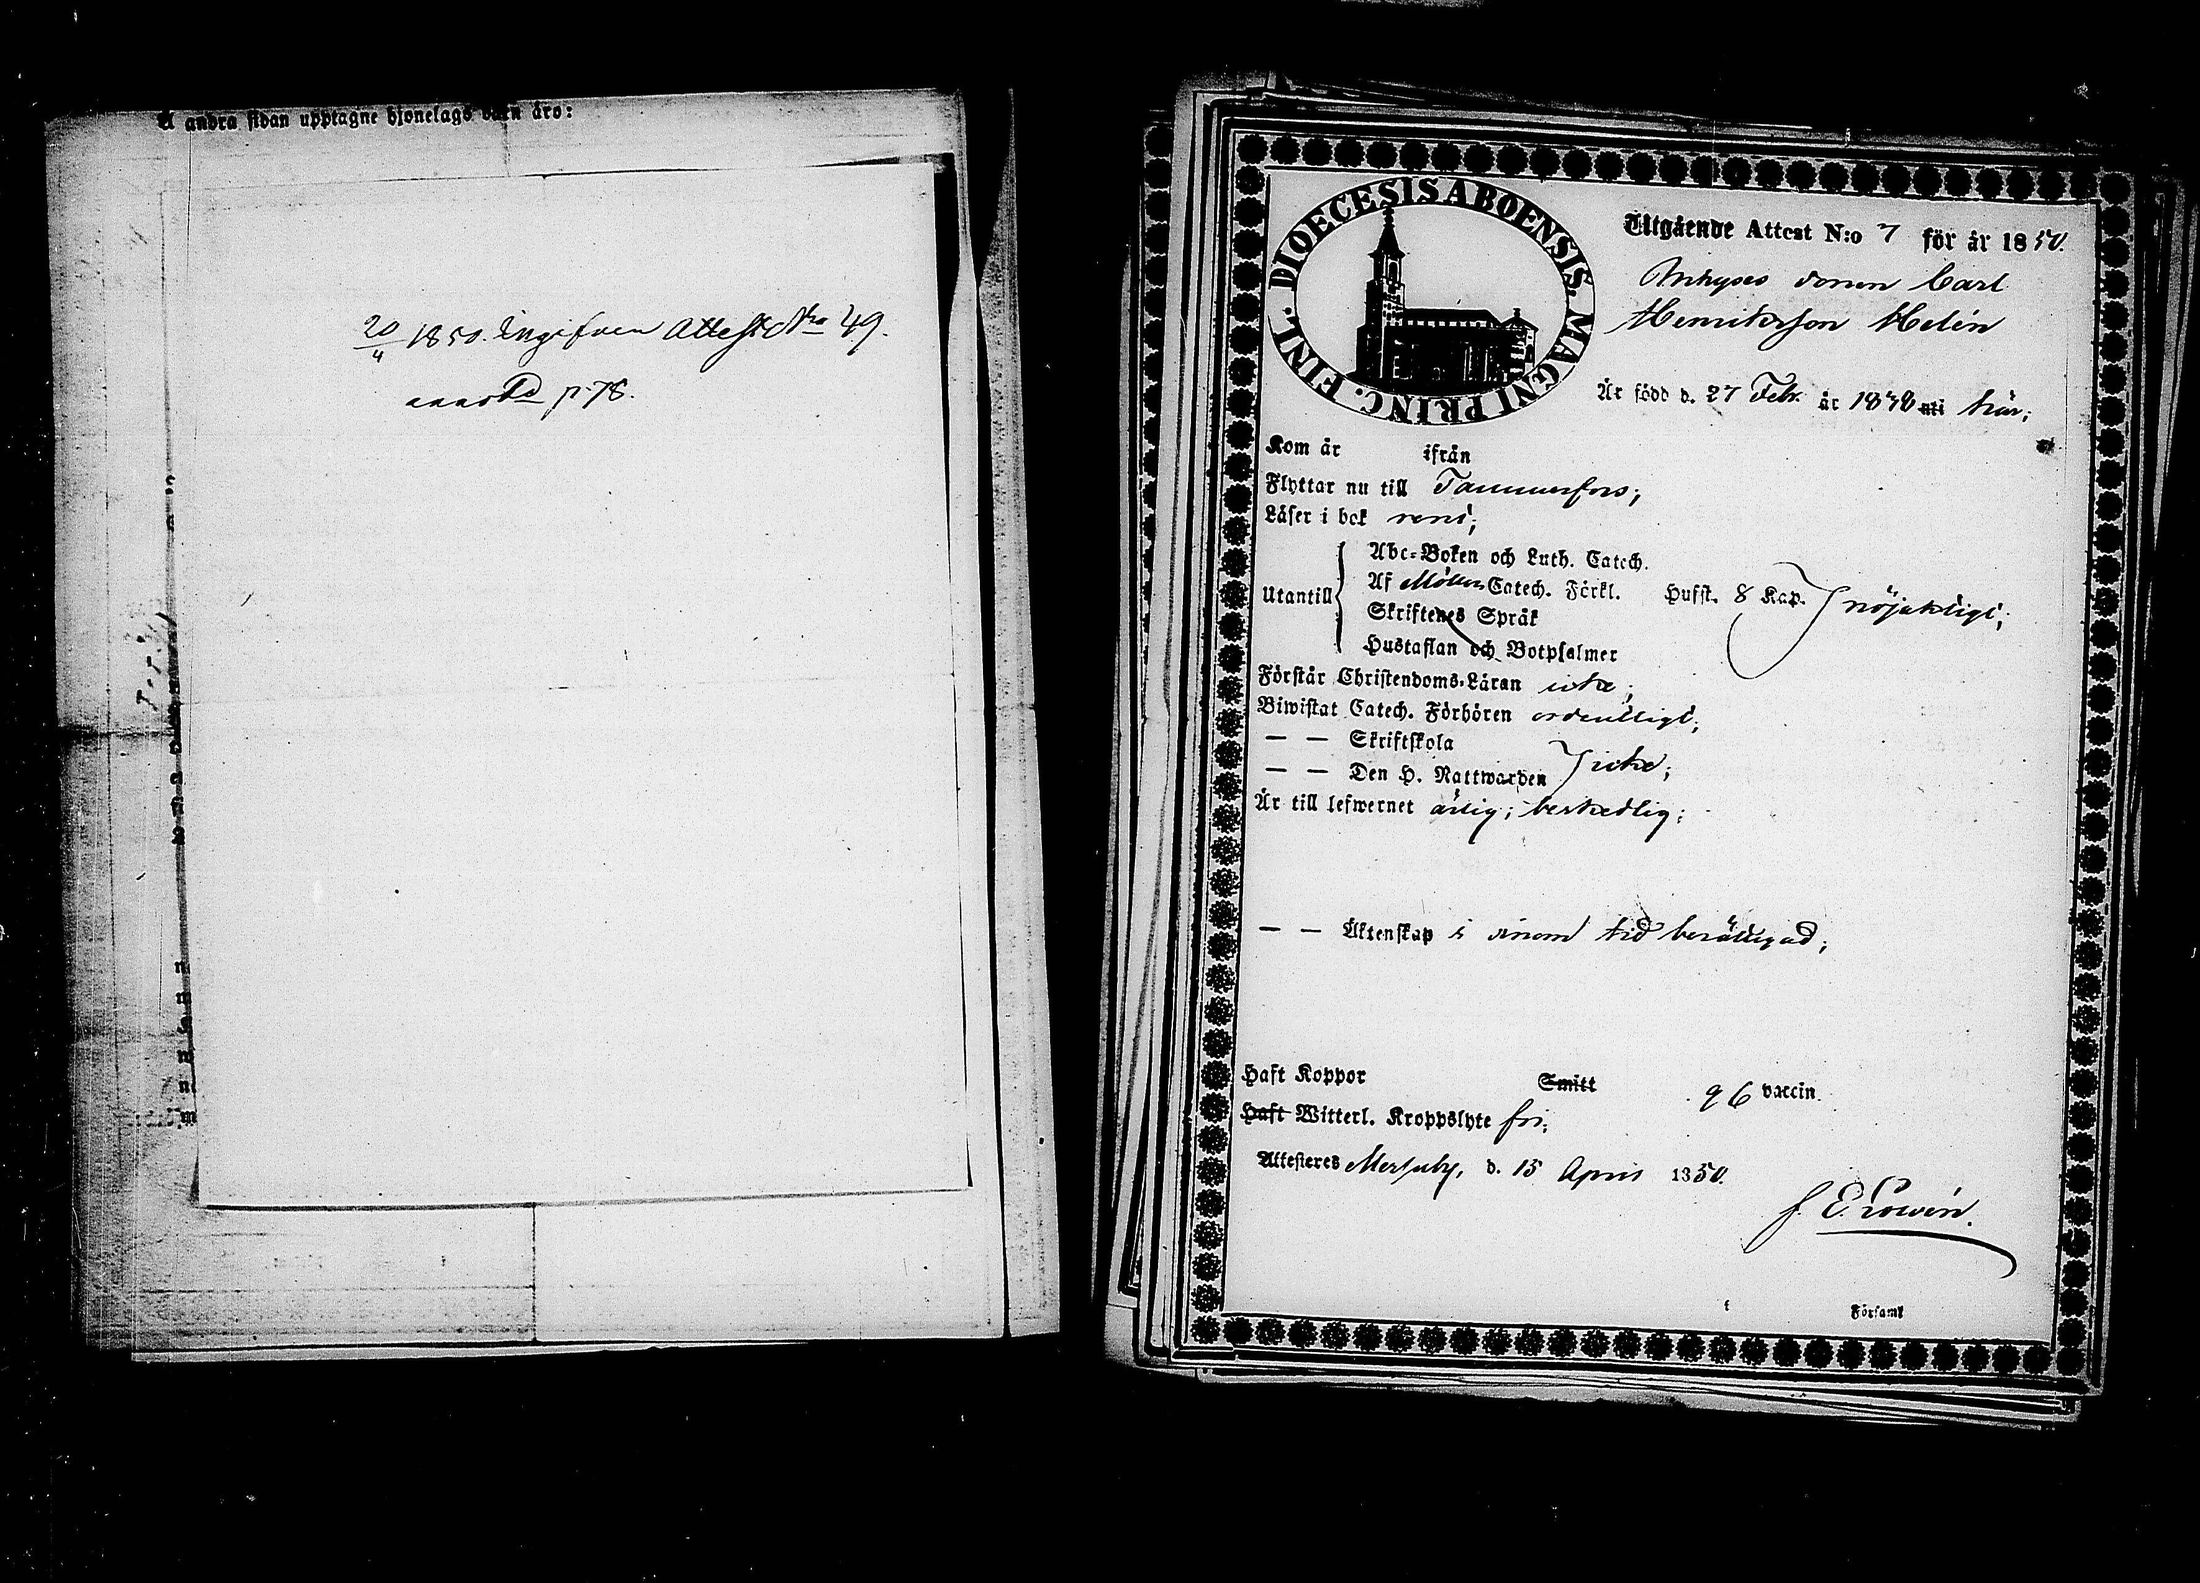 A andra sidan upptagne hjonelags barn äro:
20/4 1850. Ingifven Attest No 49.
annot. p. 78.
DIOECESIS ABOENSIS. MAGNI PRINC. FINL.
Utgående Attest N:o 7 för år 1850.
Inhyses sonen Carl
Henriksson Helén
Är född d. 27 Febr. år 1838 uti här;
Kom år ifrån
Flyttar nu till Tammerfors;
Läser i bok rent;
Abc-Boken och Luth. Catech.
Utantill Af Möllers Catech. Förkl. Hufst. 8 Kap. nöjaktigt;
Skriftenes Språk
Hustaflan och Botpsalmer
Förstår Christendoms-Läran icke;
Biwistat Catech. Förhören ordentligt;
— — Skriftskola
— — Den H. Nattwarden icke;
Är till lefwernet ärlig; beskedlig;
— — Äktenskap i sinom tid berättigad;
Haft Koppor Smitt vaccin
Haft Witterl. Kroppslyte fri;
Attesteres d. 15 April 1850.
Församl